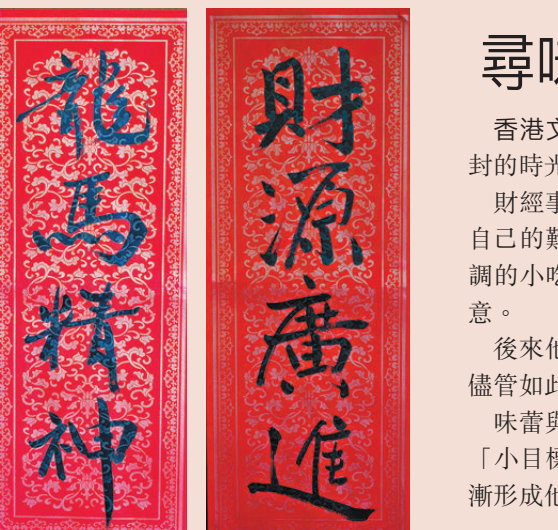 龍馬精神
財源廣進
尋
香港文
封的時光
財經事
自己的難
調的小吃
意。
後來他
儘管如此
味蕾與
「小目標
漸形成他